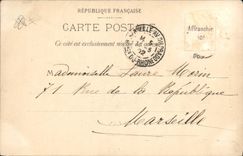 RÉPUBLIQUE FRANÇAISE
CARTE POSTALE
Ce côté est exclusivement réservé à l'adresse
Affranchir
Mademoiselle Laure Morin
71 Rue de la République
Marseille